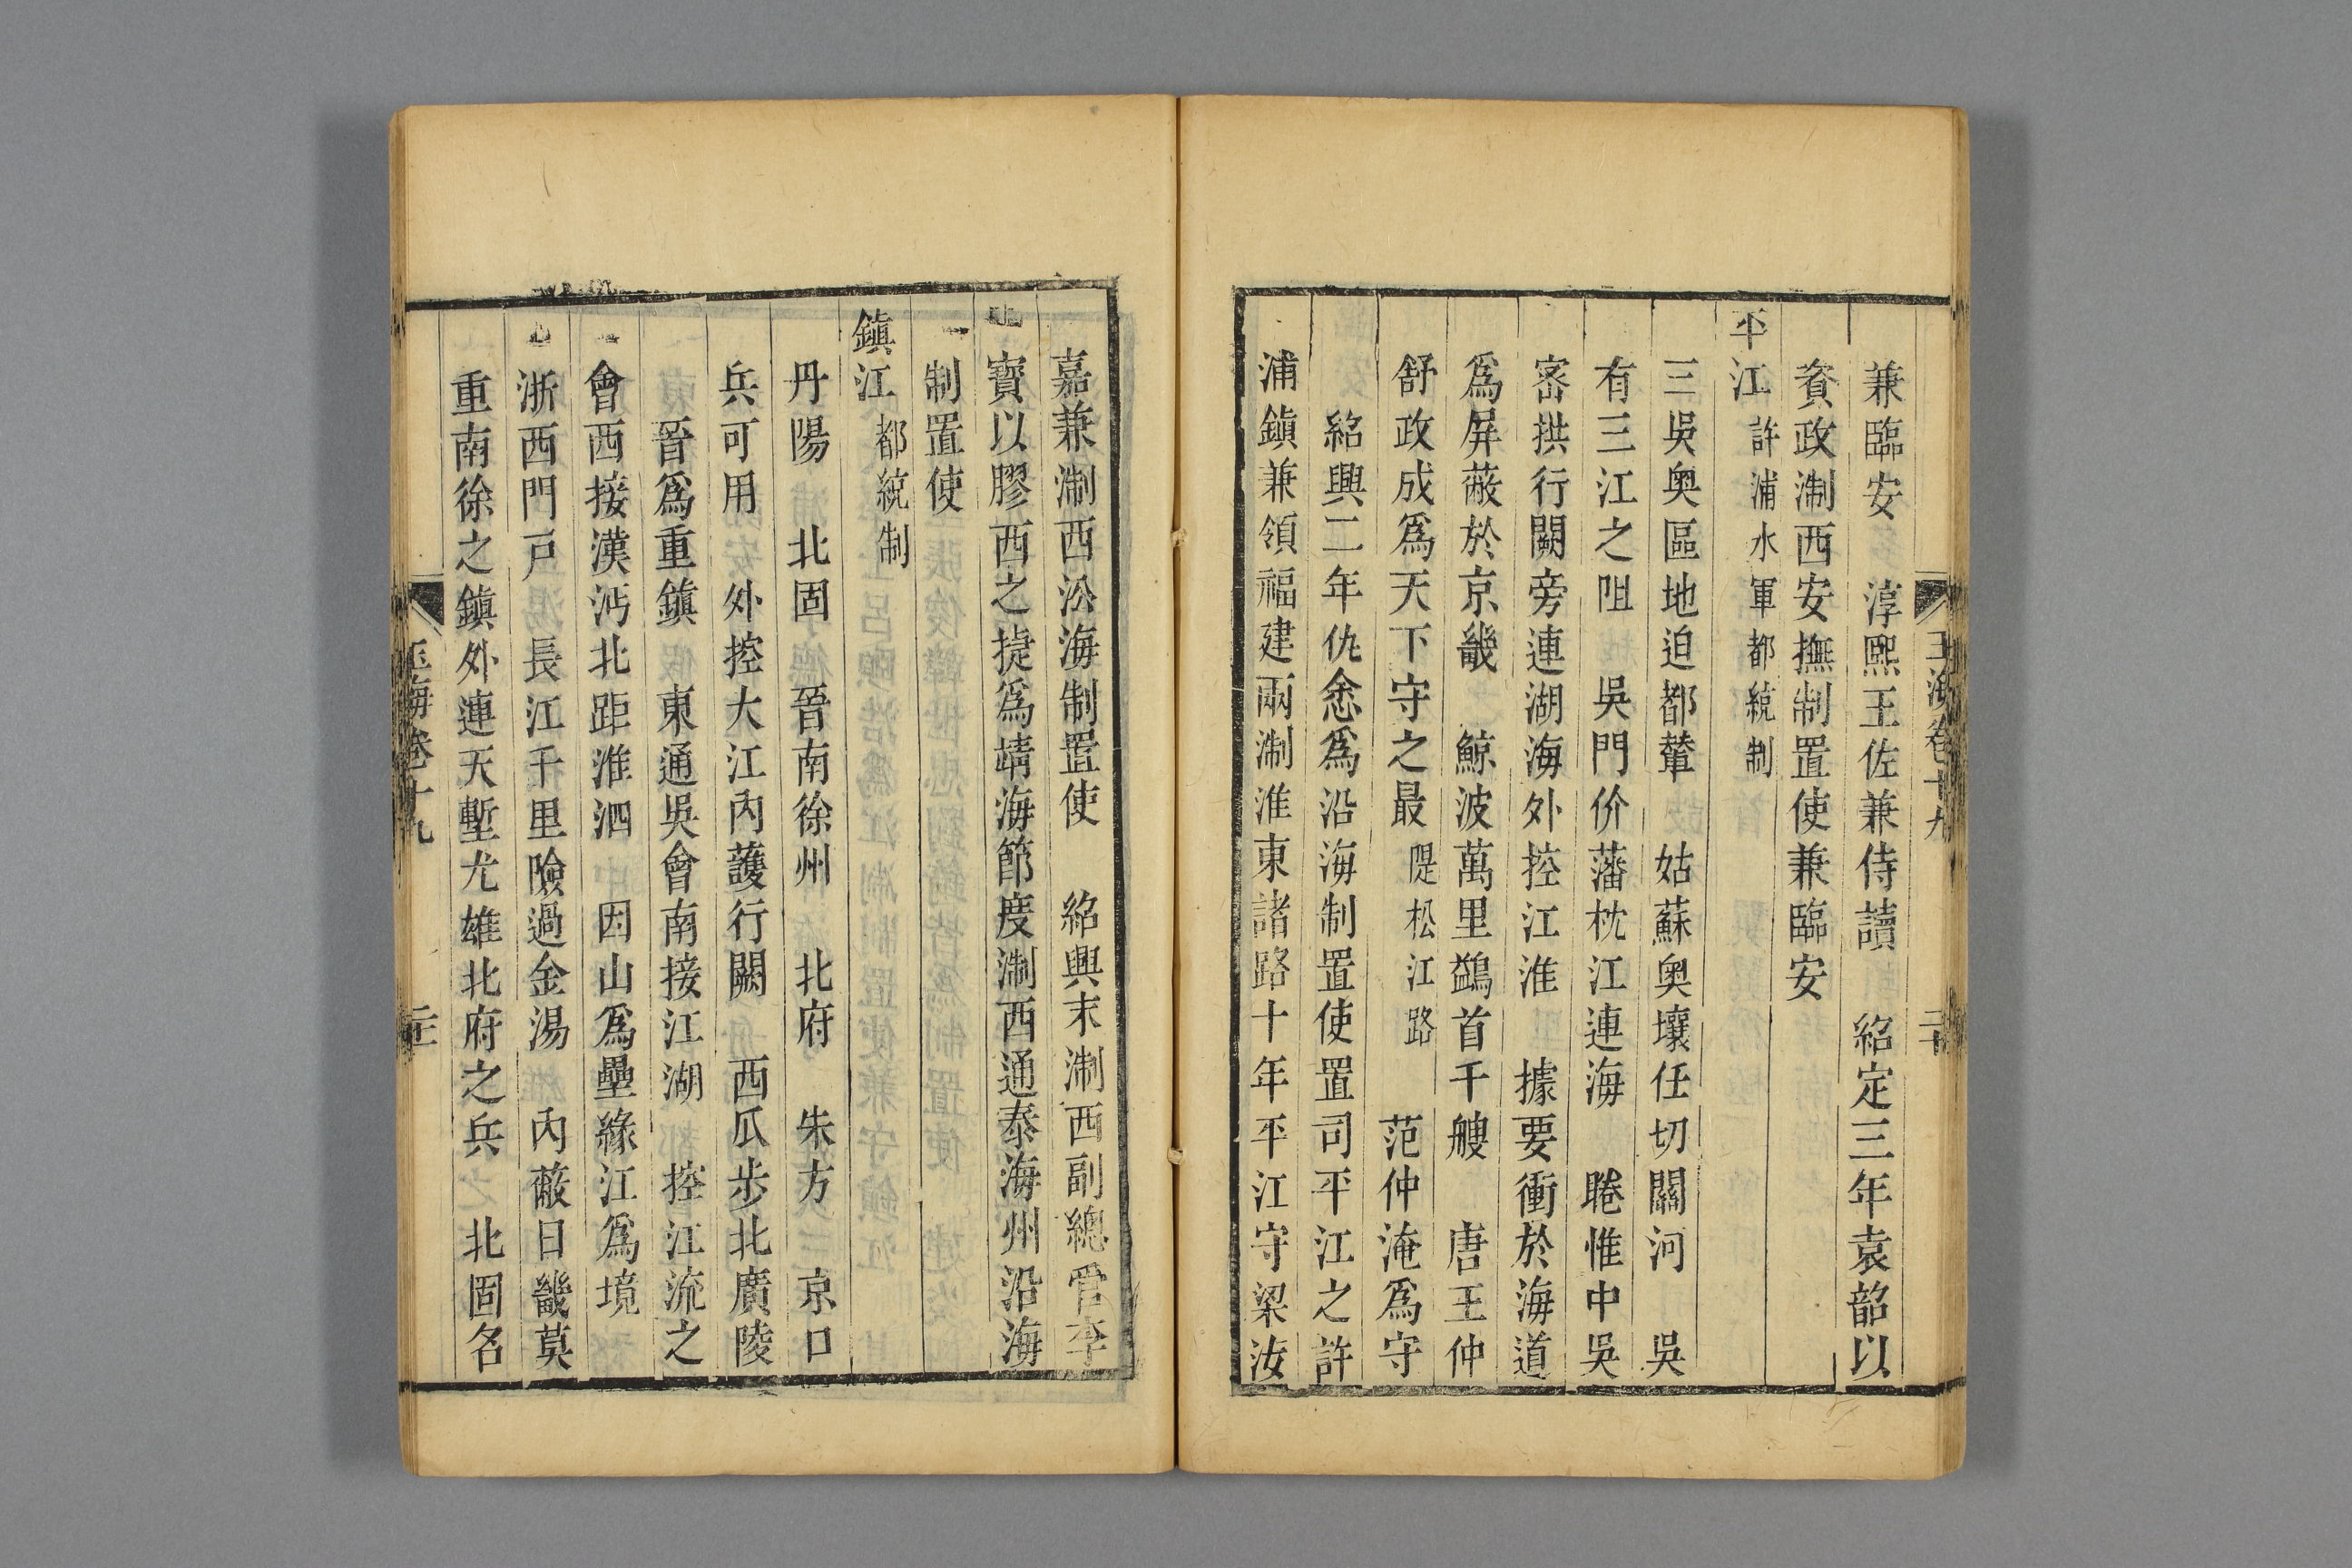 玉海卷十九
二十
兼臨安　淳熙王佐兼侍讀　紹定三年袁韶以
資政淛西安撫制置使兼臨安
平江許浦水軍都統制
三吳奧區地迫都輦　姑蘇奧壤任切關河　吳
有三江之阻　吳門价藩枕江連海　睠惟中吳
宻拱行闕旁連湖海外控江淮　據要衝於海道
爲屏蔽於京畿　鯨波萬里鷁首千艘　唐王仲
舒政成爲天下守之最隄松江路　范仲淹爲守
紹興二年仇悆爲沿海制置使置司平江之許
浦鎮兼領福建兩淛淮東諸路十年平江守梁汝
嘉兼淛西沿海制置使　紹興末淛西副總管李
寶以膠西之捷爲靖海節度淛西通泰海州沿海
制置使
鎮江都統制
丹陽　北固　晉南徐州　北府　朱方　京口
兵可用　外控大江內護行闕　西瓜步北廣陵
晉爲重鎮　東通吳會南接江湖　控江流之
會西接漢沔北距淮泗　因山爲壘緣江爲境
浙西門戸　長江千里險過金湯　內蔽日畿莫
重南徐之鎮外連天塹尤雄北府之兵　北固名
玉海卷十九
二十一